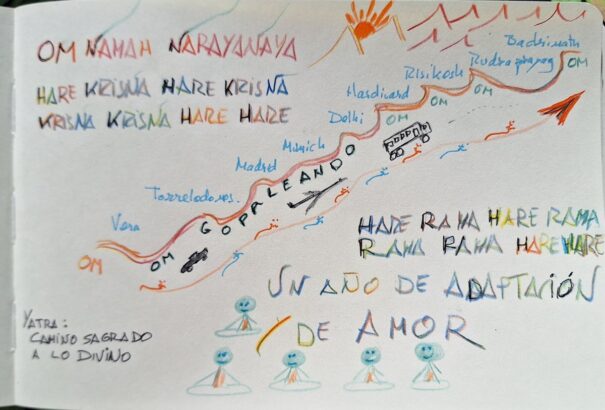 OM NAMAH NARAYANAYA
HARE KRISNA HARE KRISNA
KRISNA KRISNA HARE HARE
Badrinath
Rudraprayag
Risikesh
Hardiward
Delhi
Munich
Madrid
Torrelodones.
Vera
OM
OM
OM
OM
OM
OM
GOPALEANDO
HARE RAMA HARE RAMA
RAMA RAMA HARE HARE
UN AÑO DE ADAPTACIÓN
/ DE AMOR
YATRA:
CAMINO SAGRADO
A LO DIVINO